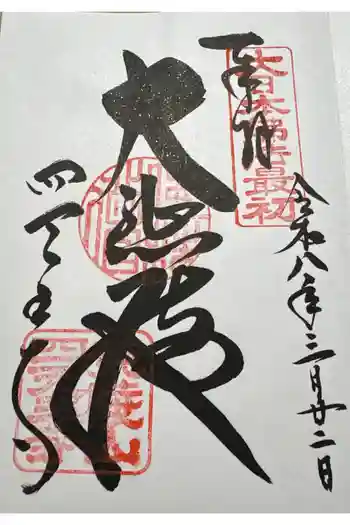 奉拝
大日本佛法最初
令和八年三月廿二日
大悲殿
四天王寺